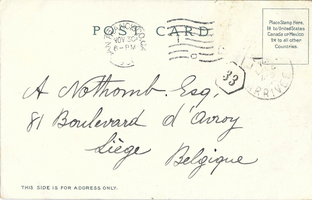 POST CARD.
Place Stamp Here,
1¢ to United States
Canada or Mexico
2¢ to all other
Countries.
NOV 30
6-PM
C
33
A Nothomb. Esq,
81 Boulevard d'Avroy
Liège
Belgique
THIS SIDE IS FOR ADDRESS ONLY.